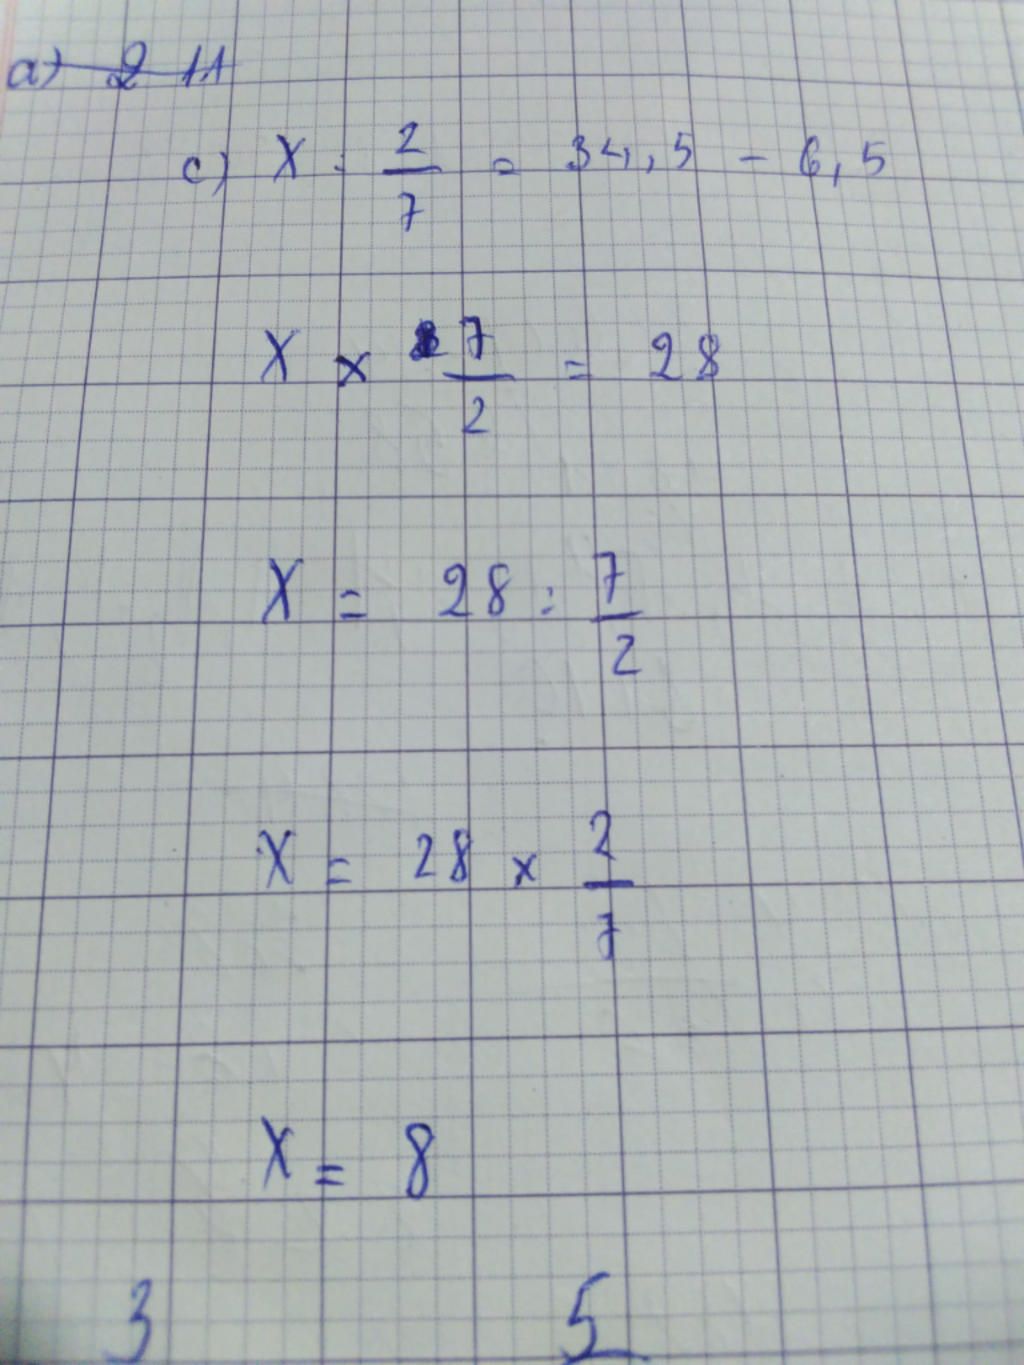 a) 2 11
c) X : 2/7 = 34,5 - 6,5
X x 7/2 = 28
X = 28 : 7/2
X = 28 x 2/7
X = 8
3 5